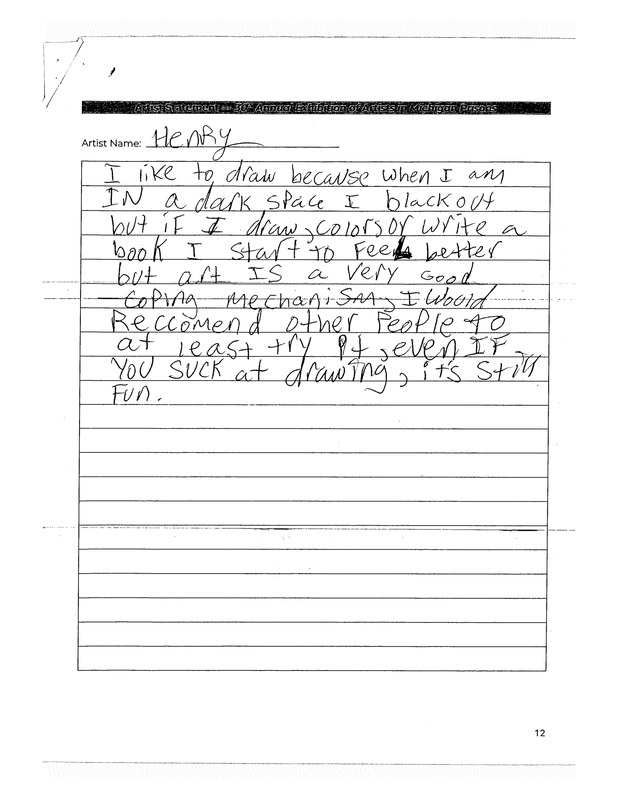 Artist Statement — 30th Annual Exhibition of Artists in Michigan Prisons
Artist Name: HENRY
I like to draw because when I am
IN a dark space I blackout
but if I draw, colors or write a
book I start to Feel better
but art IS a very Good
Coping mechanism, I Woold
Reccomend other People to
at least try it, even IF
YOU SUCK at drawing, its Still
Fun.
12